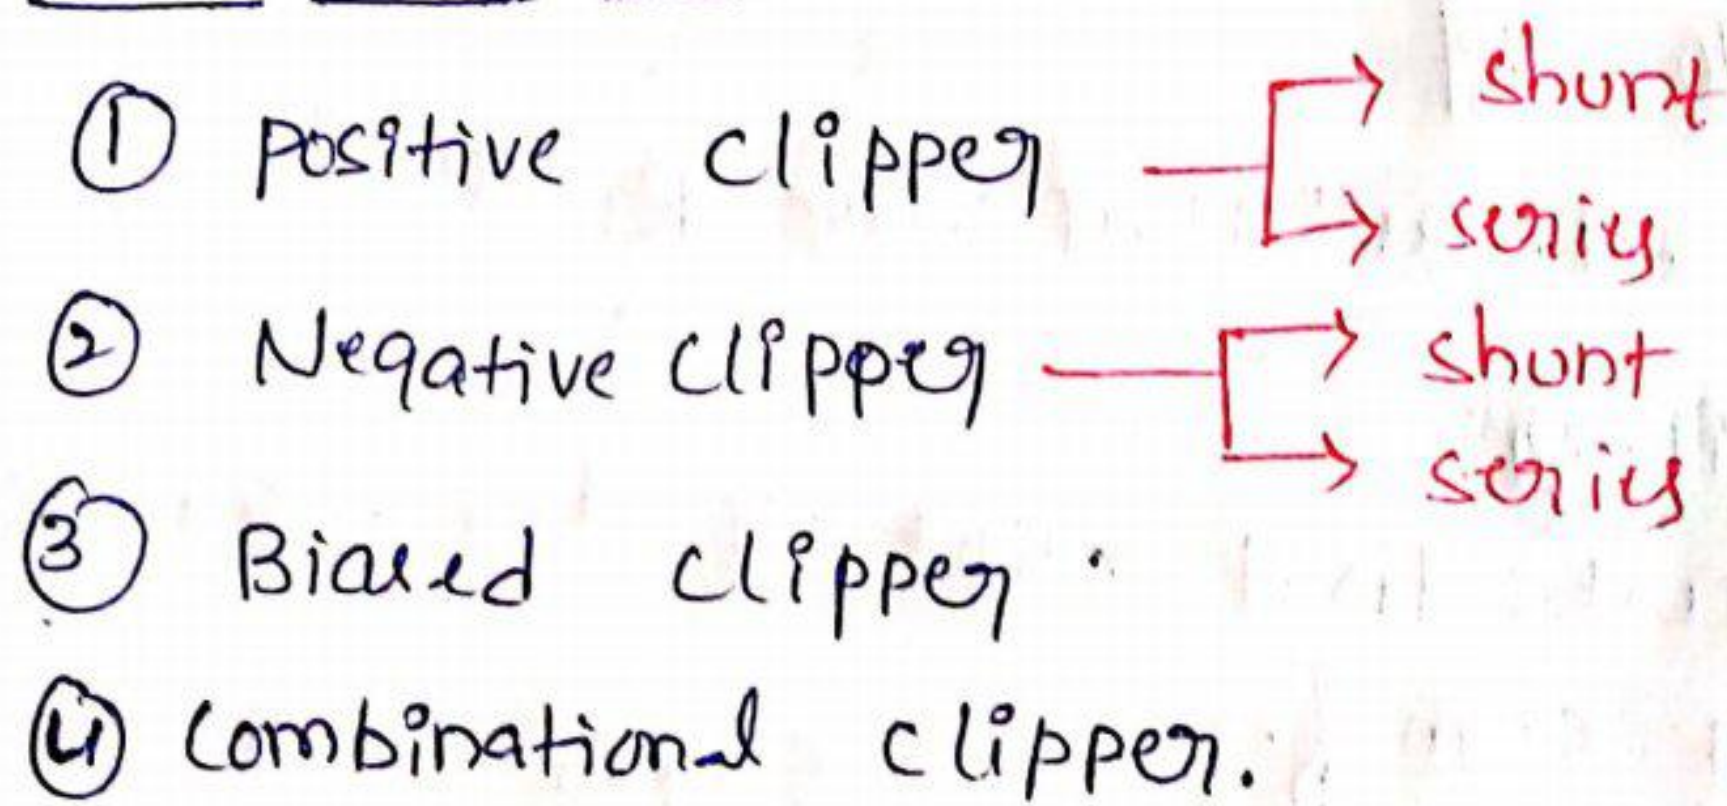 ① Positive clipper → shunt
→ series
② Negative clipper → shunt
→ series
③ Biased clipper.
④ Combinational clipper.